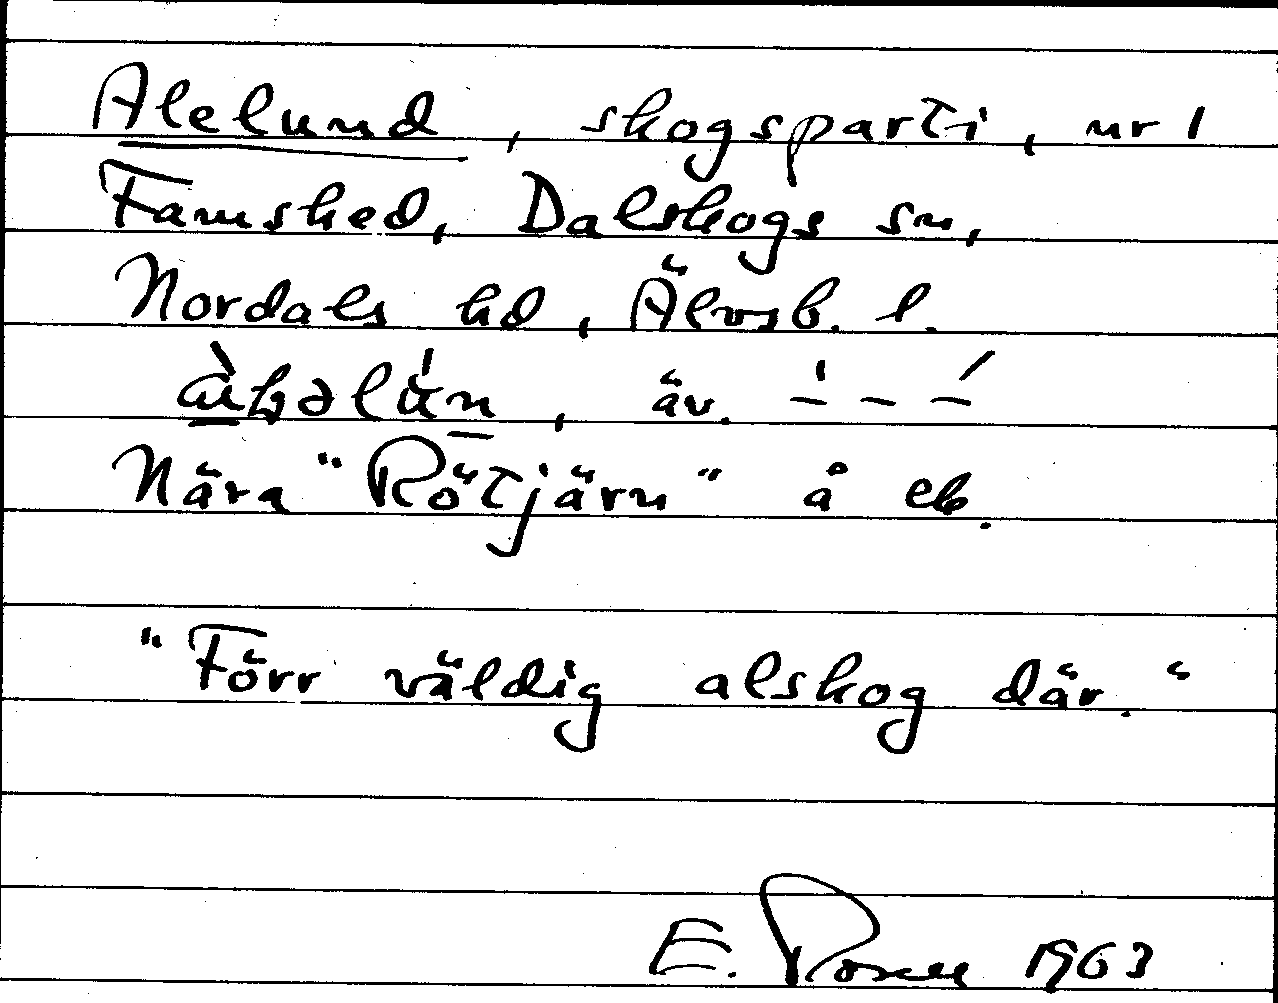 Alelund, skogsparti, nr 1
Famshed, Dalskogs sn,
Nordals hd, Älvsb. l.
äv.
Nära "Rötjärn" å ek.
"Förr väldig alskog där."
E. Rosell 1963